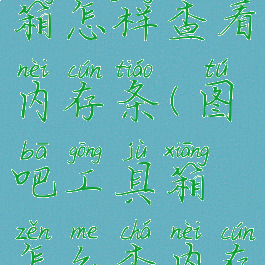 箱怎样查看
nèi cún tiáo tú
内存条(图
bā gōng jù xiāng
吧工具箱
zěn me chá nèi cún
怎么查内存